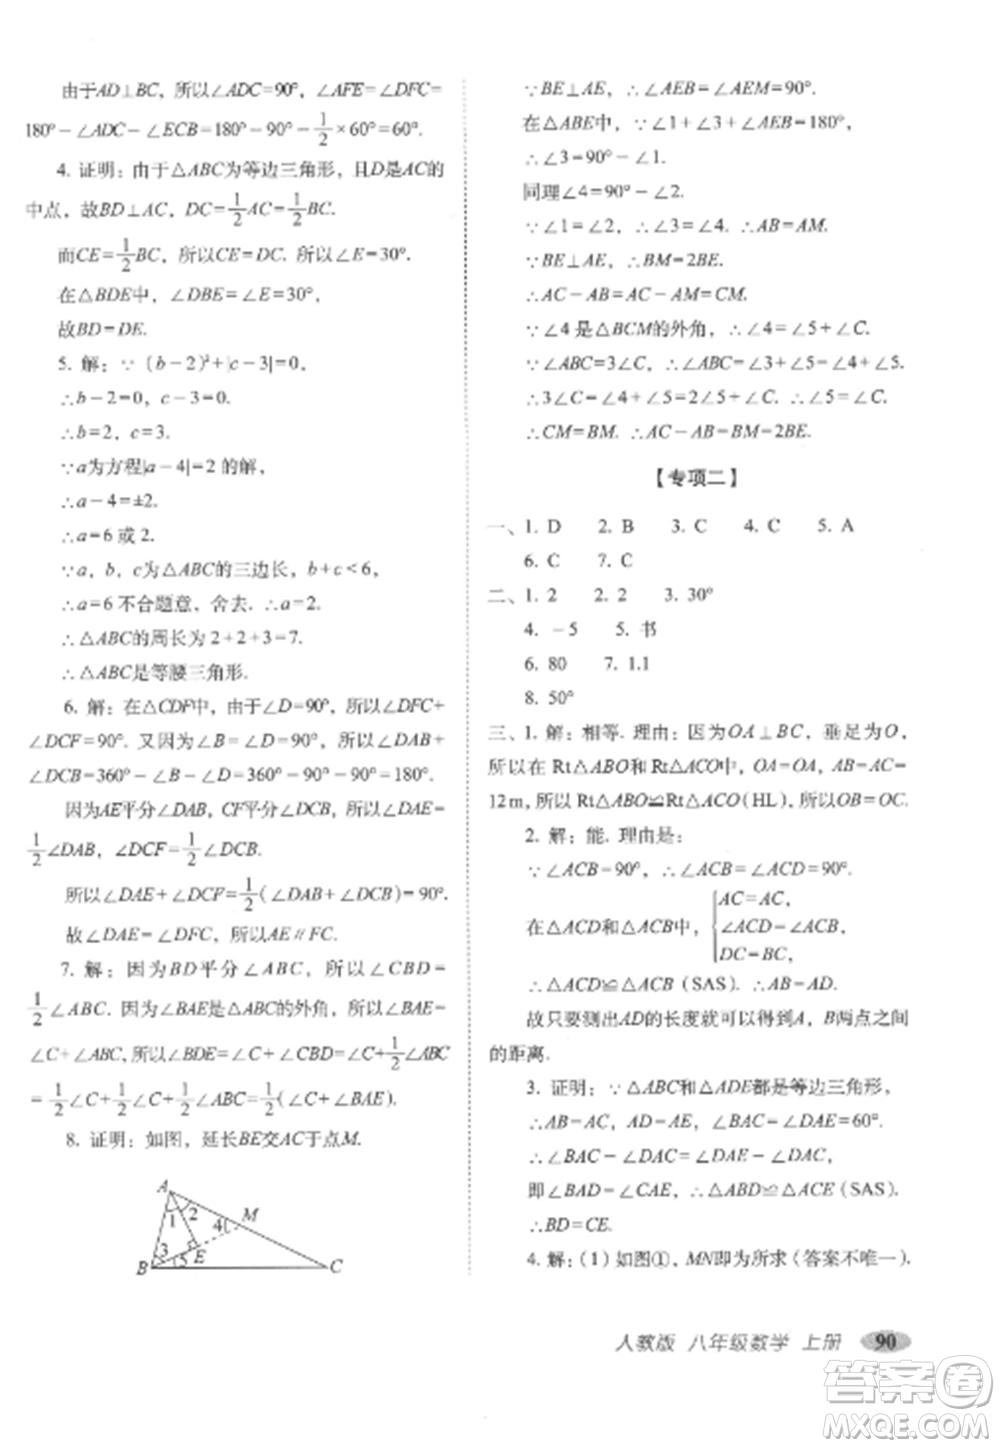 由于AD⊥BC, 所以∠ADC=90°, ∠AFE=∠DFC=
180°-∠ADC-∠ECB=180°-90°-1/2×60°=60°.
4. 证明:由于△ABC为等边三角形,且D是AC的
中点,故BD⊥AC, DC=1/2AC=1/2BC.
而CE=1/2BC, 所以CE=DC. 所以∠E=30°.
在△BDE中, ∠DBE=∠E=30°,
故BD=DE.
5. 解:∵(b-2)²+|c-3|=0,
∴b-2=0, c-3=0.
∴b=2, c=3.
∵a为方程|a-4|=2的解,
∴a-4=±2.
∴a=6或2.
∵a, b, c为△ABC的三边长, b+c<6,
∴a=6不合题意,舍去. ∴a=2.
∴△ABC的周长为2+2+3=7.
∴△ABC是等腰三角形.
6. 解:在△CDF中,由于∠D=90°,所以∠DFC+
∠DCF=90°. 又因为∠B=∠D=90°, 所以∠DAB+
∠DCB=360°-∠B-∠D=360°-90°-90°=180°.
因为AE平分∠DAB, CF平分∠DCB, 所以∠DAE=
1/2∠DAB, ∠DCF=1/2∠DCB.
所以∠DAE+∠DCF=1/2(∠DAB+∠DCB)=90°.
故∠DAE=∠DFC, 所以AE∥FC.
7. 解:因为BD平分∠ABC, 所以∠CBD=
1/2∠ABC. 因为∠BAE是△ABC的外角, 所以∠BAE=
∠C+∠ABC, 所以∠BDE=∠C+∠CBD=∠C+1/2∠ABC
=1/2∠C+1/2∠C+1/2∠ABC=1/2(∠C+∠BAE).
8. 证明:如图,延长BE交AC于点M.
A
1 2
4 M
3 E
B 5 C
∵BE⊥AE, ∴∠AEB=∠AEM=90°.
在△ABE中, ∵∠1+∠3+∠AEB=180°,
∴∠3=90°-∠1.
同理∠4=90°-∠2.
∵∠1=∠2, ∴∠3=∠4. ∴AB=AM.
∵BE⊥AE, ∴BM=2BE.
∴AC-AB=AC-AM=CM.
∵∠4是△BCM的外角, ∴∠4=∠5+∠C.
∵∠ABC=3∠C, ∴∠ABC=∠3+∠5=∠4+∠5.
∴3∠C=∠4+∠5=2∠5+∠C. ∴∠5=∠C.
∴CM=BM. ∴AC-AB=BM=2BE.
【专项二】
一、1. D 2. B 3. C 4. C 5. A
6. C 7. C
二、1. 2 2. 2 3. 30°
4. -5 5. 书
6. 80 7. 1.1
8. 50°
三、1. 解:相等. 理由:因为OA⊥BC, 垂足为O,
所以在Rt△ABO和Rt△ACO中, OA=OA, AB=AC=
12 m, 所以Rt△ABO≌Rt△ACO(HL), 所以OB=OC.
2. 解:能. 理由是:
∵∠ACB=90°, ∴∠ACB=∠ACD=90°.
在△ACD和△ACB中, { AC=AC,
∠ACD=∠ACB,
DC=BC,
∴△ACD≌△ACB(SAS). ∴AB=AD.
故只要测出AD的长度就可以得到A, B两点之间
的距离.
3. 证明:∵△ABC和△ADE都是等边三角形,
∴AB=AC, AD=AE, ∠BAC=∠DAE=60°.
∴∠BAC-∠DAC=∠DAE-∠DAC,
即∠BAD=∠CAE, ∴△ABD≌△ACE(SAS).
∴BD=CE.
4. 解:(1)如图①, MN即为所求(答案不唯一).
人教版 八年级数学 上册 90
答案圈
MXQE.COM